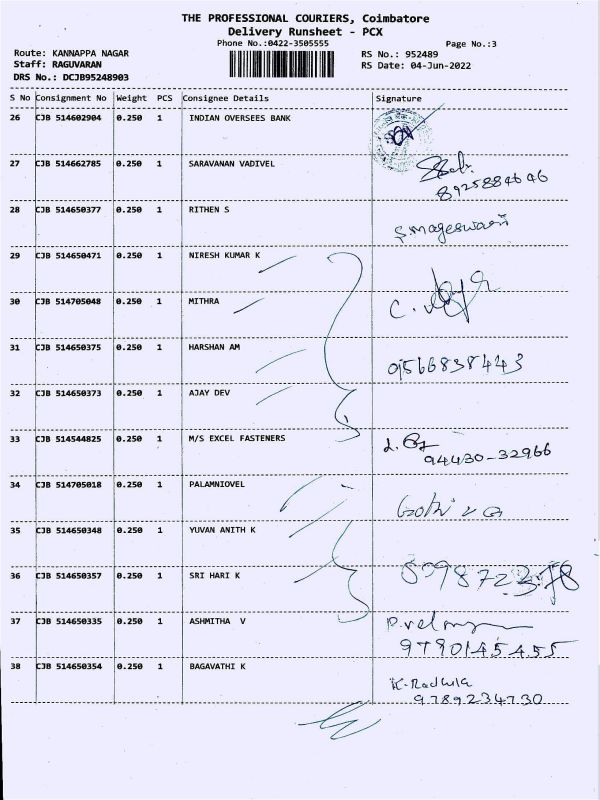 THE PROFESSIONAL COURIERS, Coimbatore
Delivery Runsheet - PCX
Phone No.:0422-3505555
Page No.:3
Route: KANNAPPA NAGAR
RS No.: 952489
Staff: RAGUVARAN
RS Date: 04-Jun-2022
DRS No.: DCJB95248903
S No Consignment No Weight PCS Consignee Details Signature
26 CJB 514602904 0.250 1 INDIAN OVERSEES BANK
27 CJB 514662785 0.250 1 SARAVANAN VADIVEL
8925884646
28 CJB 514650377 0.250 1 RITHEN S
S.mageswari
29 CJB 514650471 0.250 1 NIRESH KUMAR K
30 CJB 514705048 0.250 1 MITHRA
C.
31 CJB 514650375 0.250 1 HARSHAN AM
9566838443
32 CJB 514650373 0.250 1 AJAY DEV
33 CJB 514544825 0.250 1 M/S EXCEL FASTENERS
94430-32966
34 CJB 514705018 0.250 1 PALAMNIOVEL
35 CJB 514650348 0.250 1 YUVAN ANITH K
36 CJB 514650357 0.250 1 SRI HARI K
37 CJB 514650335 0.250 1 ASHMITHA V
9790145455
38 CJB 514650354 0.250 1 BAGAVATHI K
K.Radhika
9789234730